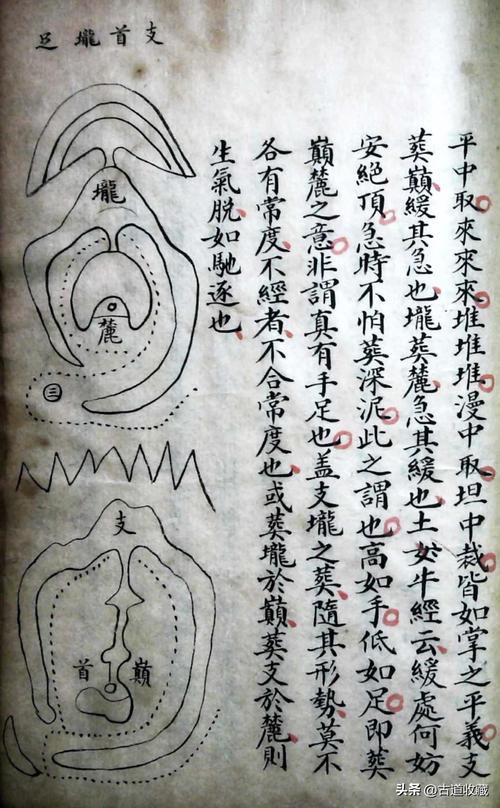 支首壠足
平中取來來來堆堆堆漫中取坦中裁皆如掌之平義支
葬巔緩其急也壠葬麓急其緩也土女牛經云緩處何妨
安絕頂急時不怕葬深泥此之謂也高如手低如足即葬
巔麓之意非謂真有手足也盖支壠之葬隨其形勢莫不
各有常度不經者不合常度也或葬壠於巔葬支於麓則
生氣脫如馳逐也
壠
麓
三
支
巔首
头条 @古道收藏